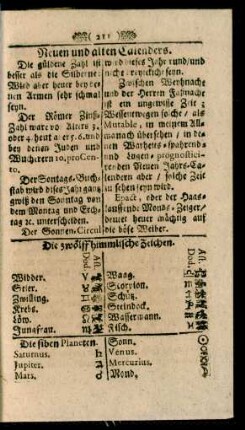 211
Neuen und alten Calenders.
Die güldene Zahl ist
besser als die Silberne
Wird aber heuer bey de
nen Armen sehr schmal
seyn.
Der Römer Zinß-
Zahl ware vo Alters 3.
oder 4. heut a 5. 6. und
bey denen Juden und
Wucherern 10. pro Cen-
to.
Der Sontags-Buch-
stab wird dises Jahr gantz
gwiß den Sonntag von
dem Montag und Erch-
tag ec. unterscheiden.
Der Sonnen Circul
wird dieses Jahr rund / und
nicht viereckich seyn.
Zwischen Weyhnacht
und der Herren Faßnacht
ist ein ungewisse Zeit;
Wessentwegen solche / als
Mutable, in meinem All-
manach übersehen / in de-
nen Warheits-spahrend-
und Lugen-prognosticir-
renden Neuen Jahrs-Ca-
lendern aber / solche Zeit
zu sehen seyn wird.
Epact, oder der Haus-
lauffende Monds-Zeiger /
deutet heuer mächtig auf
die böse Weiber.
Die zwölff himmlische Zeichen.
Widder. ♈ Waag. ♎
Stier. ♉ Scorpion. ♏
Zwilling. ♊ Schütz. ♐
Krebs. ♋ Steinbock. ♑
Löw. ♌ Wassermann. ♒
Jungfrau. ♍ Fisch. ♓
Die siben Planeten. Sonn. ☉
Saturnus. ♄ Venus. ♀
Jupiter. ♃ Mercurius. ☿
Mars. ♂ Mond. ☾